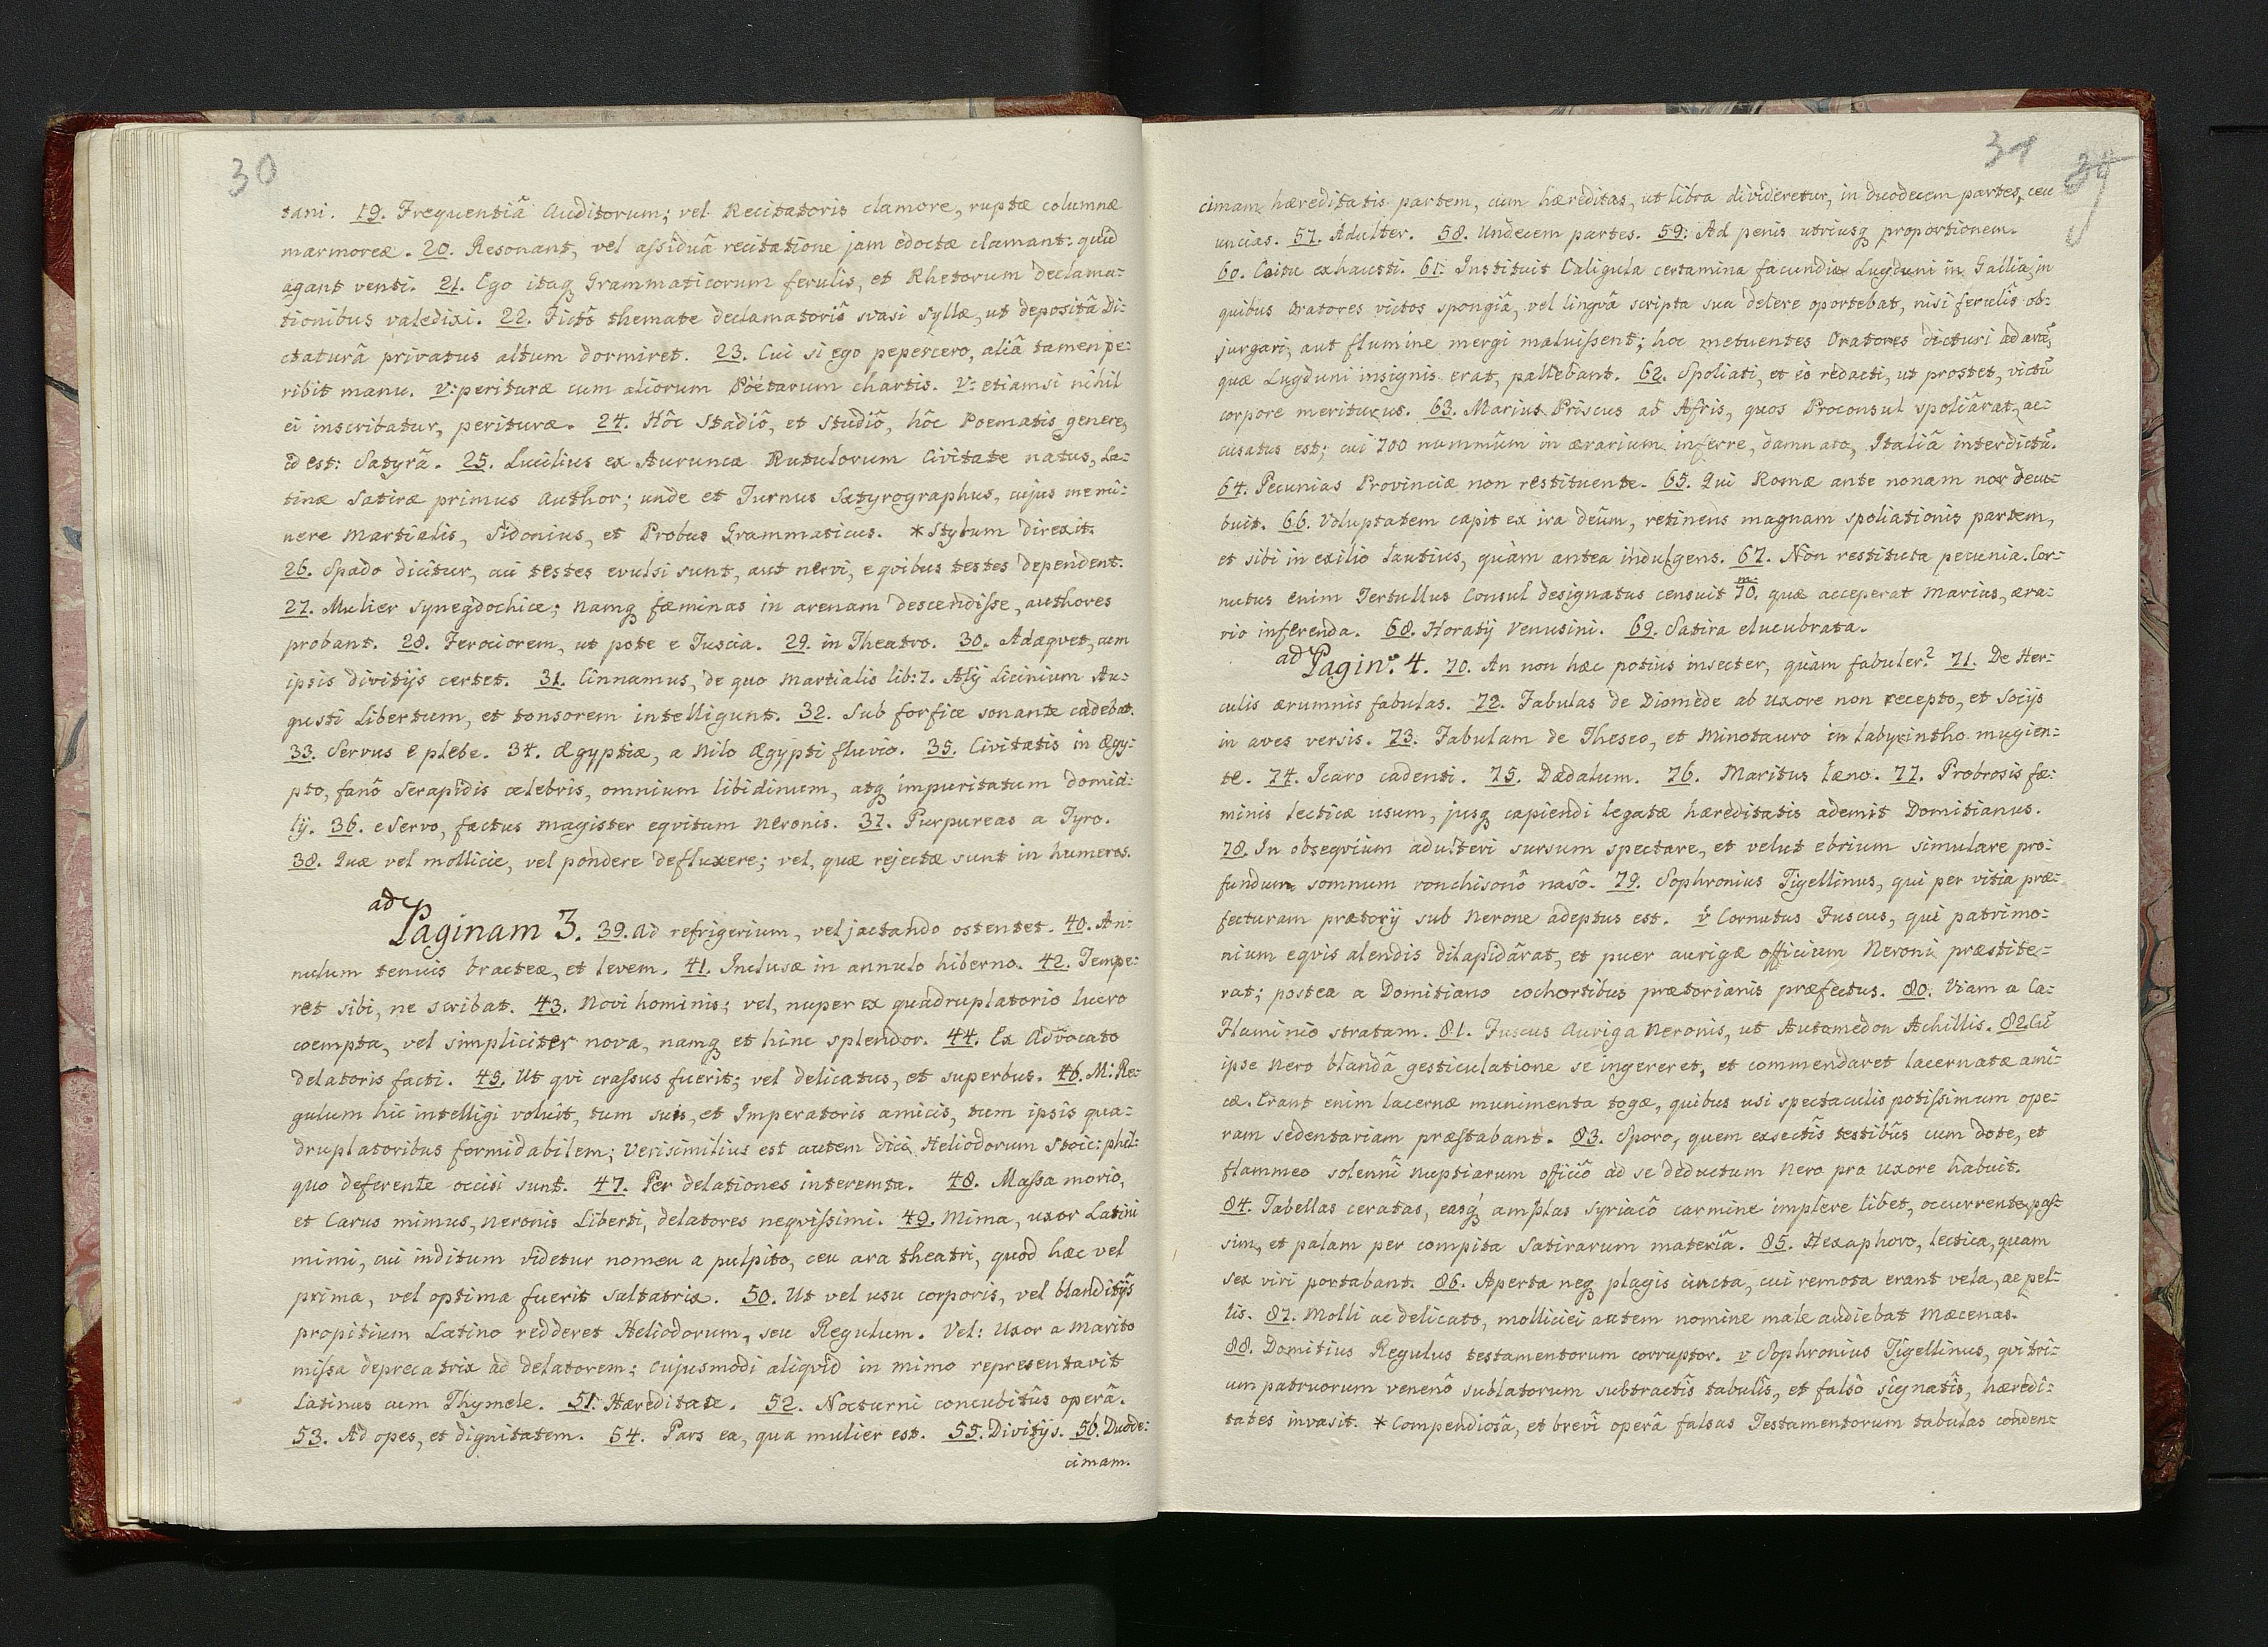 30
tani. 19. Frequentiâ Auditorum; vel Recitatoris clamore, ruptæ columnæ
marmoreæ. 20. Resonant, vel assiduâ recitatione jam edoctæ clamant: quid
agant venti. 21. Ego itaq Grammaticorum ferulis, et Rhetorum declama-
tionibus valedixi. 22. Fictô themate declamatoriô svasi Syllæ, ut depositâ Di-
ctaturâ privatus altum dormiret. 23. Cui si ego pepercero, aliâ tamen pe-
ribit manu. V: perituræ cum aliorum Poëtarum chartis. V: etiamsi nihil
ei inscribatur, perituræ. 24. Hôc Stadiô, et Studiô, hôc Poematis genere,
id est: Satyrâ. 25. Lucilius ex Aurunca Rutulorum Civitate natus, La-
tinæ Satiræ primus Author; unde et Turnus Satyrographus, cujus memi-
nere Martialis, Sidonius, et Probus Grammaticus. * Stylum direxit.
26. Spado dicitur, cui testes evulsi sunt, aut nervi, e qvibus testes dependent.
27. Mulier synegdochice; namq fæminas in arenam descendisse, authores
probant. 28. Ferociorem, ut pote e Tuscia. 29. in Theatro. 30. Adæqvet, cum
ipsis divitijs certet. 31. Cinnamus, de quo Martialis lib: 7. Alij Licinium Au-
gusti Libertum, et tonsorem intelligunt. 32. Sub forfice sonante cadebat.
33. Servus e plebe. 34. Ægyptiæ, a Nilo Ægypti fluvio. 35. Civitatis in Ægy-
pto, fanô Serapidis celebris, omnium libidinum, atq impuritatum domici-
lij. 36. e Servo, factus magister eqvitum Neronis. 37. Purpureas a Tyro.
38. Quæ vel mollicie, vel pondere defluxere; vel, quæ rejectæ sunt in humeros.
ad Paginam 3. 39. ad refrigerium, vel jactando ostentet. 40. An-
nulum tenuis bracteæ, et levem. 41. Inclusæ in annulo hiberno. 42. Tempe-
ret sibi, ne scribat. 43. Novi hominis; vel, nuper ex quadruplatorio lucro
coempta, vel simpliciter nova, namq et hinc splendor. 44. Ex Advocato
delatoris facti. 45. Ut qvi crassus fuerit; vel delicatus, et superbus. 46. M: Re-
gulum hic intelligi voluit, tum suis, et Imperatoris amicis, tum ipsis qua-
druplatoribus formidabilem; Verisimilius est autem dici Heliodorum Stoic: phil:
quo deferente occisi sunt. 47. Per delationes interemta. 48. Massa morio,
et Carus mimus, Neronis Liberti, delatores neqvissimi. 49. Mima, uxor Latini
mimi, cui inditum videtur nomen a pulpito, ceu ara theatri, quod hæc vel
prima, vel optima fuerit saltatrix. 50. Ut vel usu corporis, vel blanditijs
propitium Latino redderet Heliodorum, seu Regulum. Vel: Uxor a Marito
missa deprecatrix ad delatorem; cujusmodi aliqvid in mimo representavit
Latinus cum Thymele. 51. Hæreditate. 52. Nocturni concubitûs operâ.
53. Ad opes, et dignitatem. 54. Pars ea, qua mulier est. 55. Divitijs. 56. Duode-
cimam.
31
cimam hæreditatis partem, cum hæreditas, ut libra divideretur, in duodecem partes, ceu
uncias. 57. Adulter. 58. Undecem partes. 59: Ad penis utriusq proportionem.
60. Coitu exhausti. 61: Instituit Caligula certamina facundiæ Lugduni in Gallia, in
quibus Oratores victos spongiâ, vel lingvâ scripta sua delere oportebat, nisi ferulis ob-
jurgari, aut flumine mergi maluissent; hoc metuentes Oratores dicturi ad arã,
quæ Lugduni insignis erat, pallebant. 62. Spoliati, et eò redacti, ut prostet, victũ
corpore meriturus. 63. Marius Priscus ab Afris, quos Proconsul spoliârat, ac-
cusatus est; cui 700 nummûm in ærarium inferre, damnato, Italiâ interdictũ.
64. Pecunias Provinciæ non restituente. 65. Qui Romæ ante nonam non decu-
buit. 66. Voluptatem capit ex ira deûm, retinens magnam spoliationis partem,
et sibi in exilio lautius, quàm antea indulgens. 67. Non restituta pecunia. Cor-
nutus enim Tertullus Consul designatus censuit 70.m quæ acceperat Marius, æra-
rio inferenda. 68. Horatij Venusini. 69. Satira elucubrata.
ad Pagin: 4. 70. An non hæc potius insecter, quàm fabuler? 71. De Her-
culis ærumnis fabulas. 72. Fabulas de Diomede ab Uxore non recepto, et Socijs
in aves versis. 73. Fabulam de Theseo, et Minotauro in labyrintho mugien-
te. 74. Icaro cadenti. 75. Dædalum. 76. Maritus læno. 77. Probrosis fæ-
minis lecticæ usum, jusq capiendi legatæ hæreditatis ademit Domitianus.
78. In obseqvium adulteri sursum spectare, et velut ebrium simulare pro-
fundum somnum ronchisonô nasô. 79. Sophronius Tigellinus, qui per vitia præ-
fecturam prætorij sub Nerone adeptus est. v Cornutus Fuscus, qui patrimo-
nium eqvis alendis dilapidârat, et puer aurigæ officium Neroni præstite-
rat; postea a Domitiano cochortibus prætorianis præfectus. 80. Viam a Ca-
Flaminio stratam. 81. Fuscus Auriga Neronis, ut Automedon Achillis. 82. Cũ
ipse Nero blandâ gesticulatione se ingereret, et commendaret lacernatæ ami-
cæ. Erant enim lacernæ munimenta togæ, quibus usi spectaculis potissimum ope-
ram sedentariam præstabant. 83. Sporo, quem exsectis testibus cum dote, et
flammeo solenni nuptiarum officiô ad se deductum Nero pro uxore habuit.
84. Tabellas ceratas, easq amplas Syriacô carmine implere libet, occurrente pas-
sim, et palam per compita Satirarum materiâ. 85. Hexaphoro, lectica, quam
sex viri portabant. 86. Aperta neq plagis cincta, cui remota erant vela, ac pel-
lis. 87. Molli ac delicato, molliciei autem nomine male audiebat Mæcenas.
88. Domitius Regulus testamentorum corruptor. v Sophronius Tigellinus, qvi tri-
um patruorum venenô sublatorum subtractis tabulis, et falsò signatis, hæredi-
tates invasit. * Compendiosâ, et brevî operâ falsas Testamentorum tabulas conden-